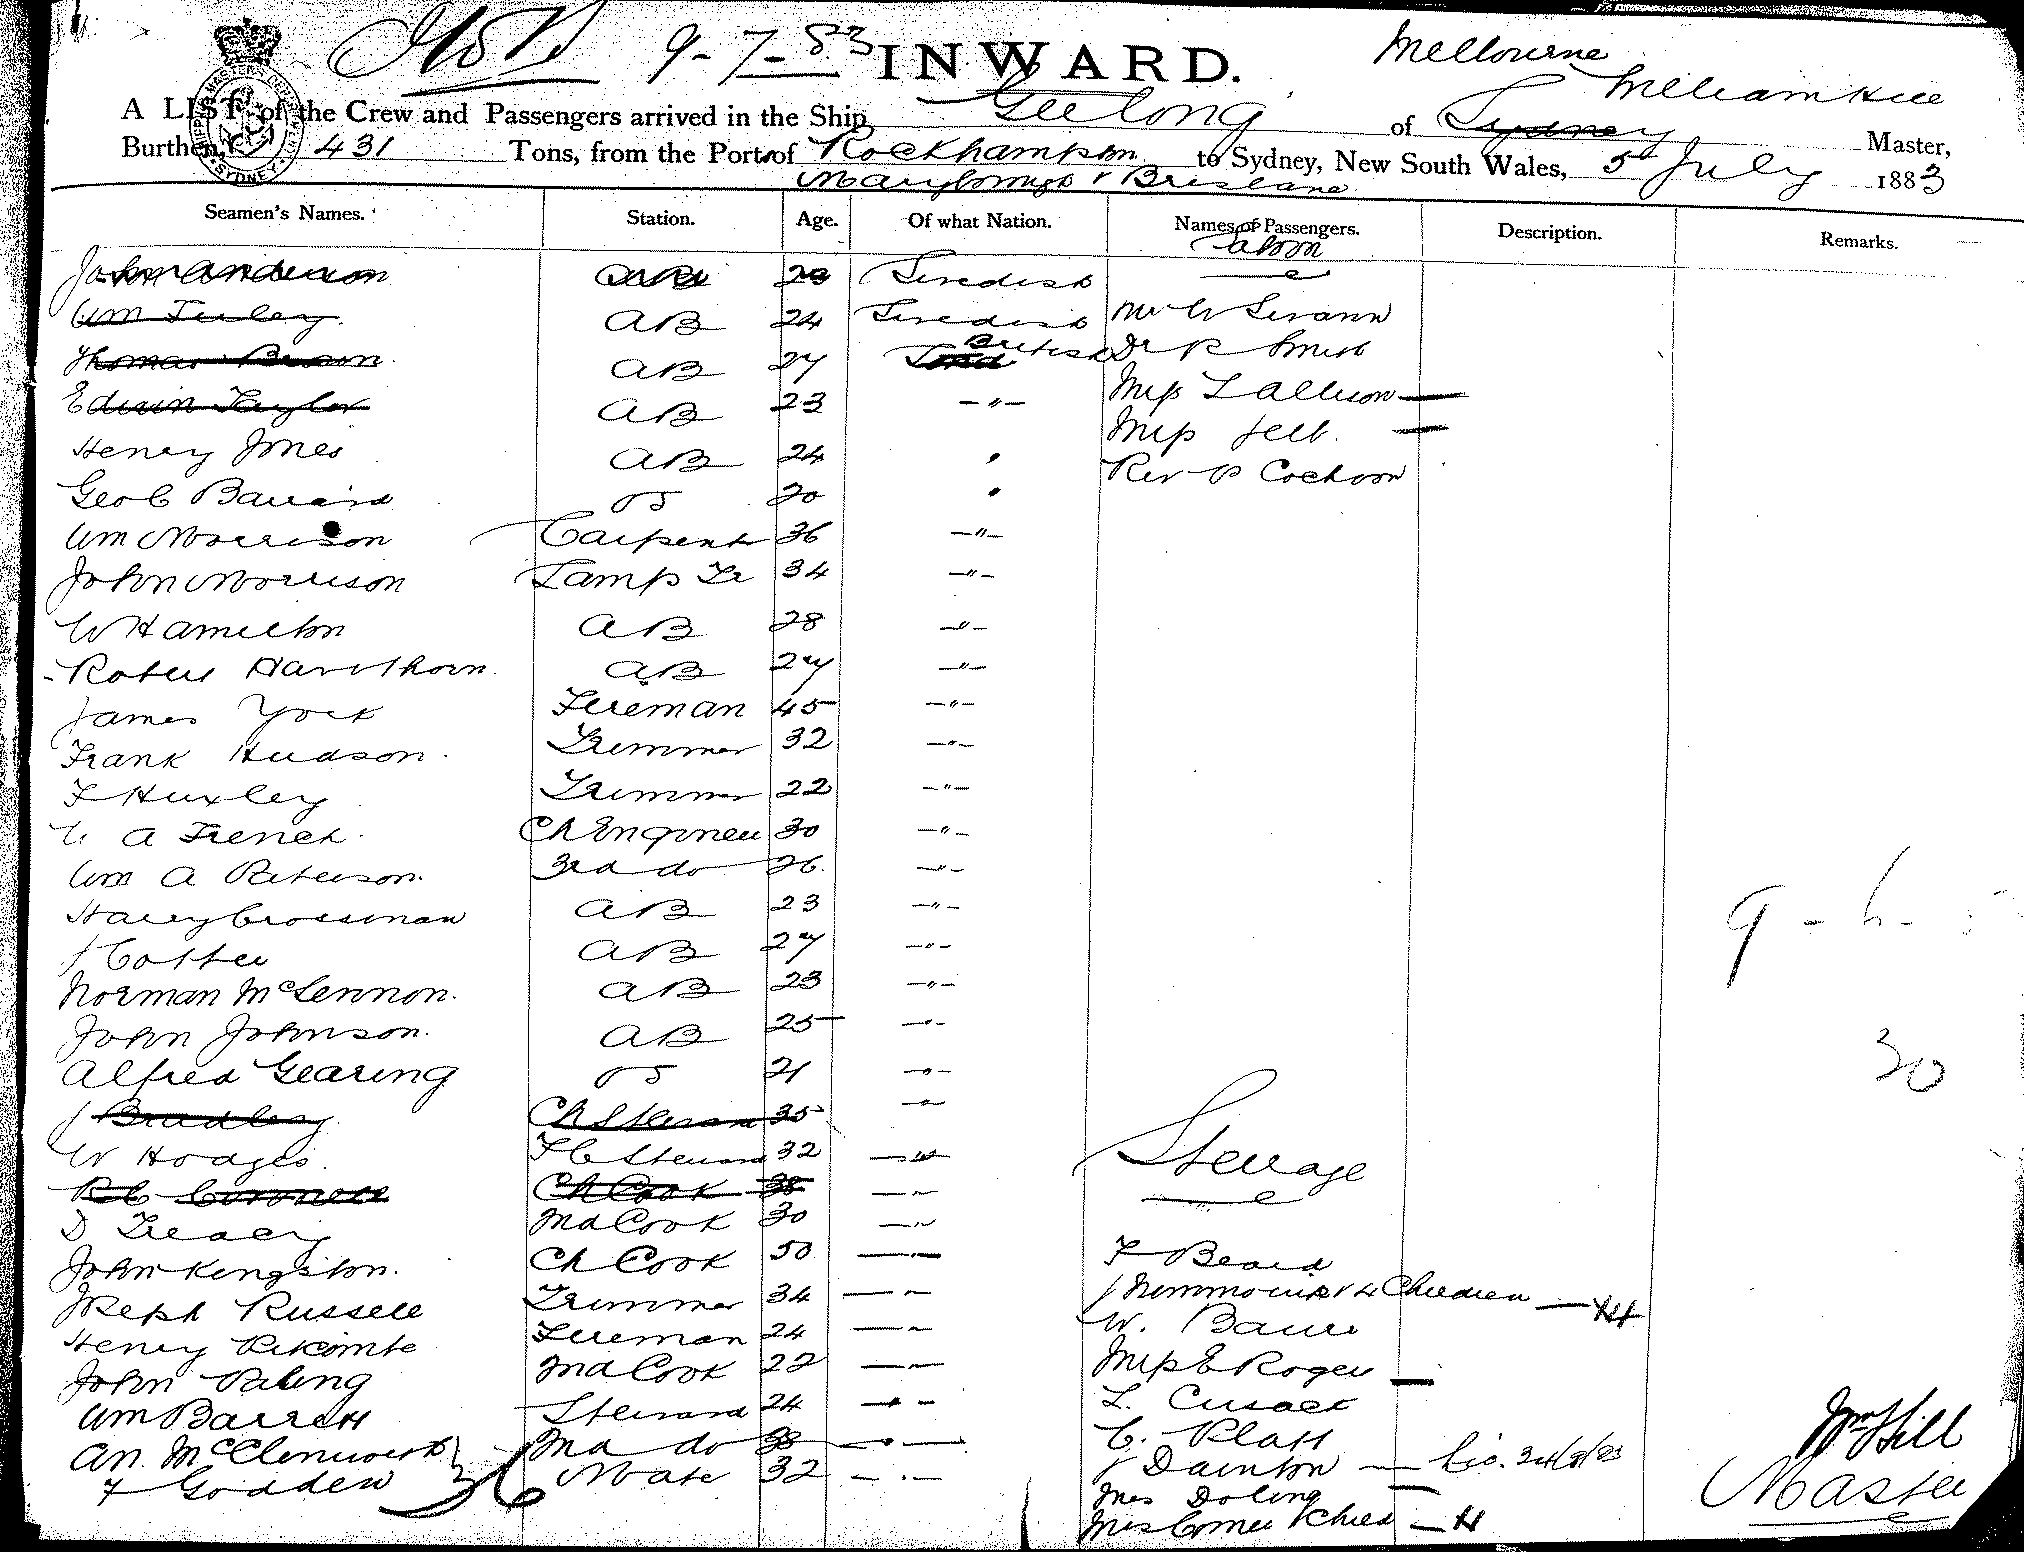 9-7-83 INWARD. Melbourne
A LIST of the Crew and Passengers arrived in the Ship Geelong of Sydney William Hill Master,
Burthen, 431 Tons, from the Port of Rockhampton to Sydney, New South Wales, 5 July 1883
Maryborough & Brisbane
Seamen's Names. Station. Age. Of what Nation. Names of Passengers. Description. Remarks.
Saloon
John Anderson AB 28 Swedish
Wm AB 24 Swedish Mr W Swann
Thomas Brown AB 27 British Dr R Smith
Edwin Taylor AB 23 -"- Miss L Allison —
Henry Jones AB 24 " Miss —
Geo C Barrard OS 20 " Rev P
Wm Morrison Carpentr 36 -"-
John Morrison Lamp Tr 34 -"-
W Hamilton AB 28 -"-
Robert Hawthorn AB 27 -"-
James York Fireman 45 -"-
Frank Hudson Trimmer 32 -"-
F Huxley Trimmer 22 -"-
A French Ch Engineer 30 -"-
Wm A Peterson 3rd do 26 -"-
Harry Crossman AB 23 -"-
J Cotter AB 27 -"-
Norman McLennon AB 23 -"-
John Johnson AB 25 -"-
Alfred Gearing OS 21 -"-
J Bradley Ch Steward 35 "
W Hodges FC Steward 32 -"- Steerage
RC Ch Cook 38 -"-
D Treacy 2nd Cook 30 -"-
John Kingston Ch Cook 50 -"- F Beard
Joseph Russell Trimmer 34 -"- J & 4 Children —
Henry Fireman 24 -"- W.
John Paling 2nd Cook 22 -"- Miss E Roger —
Wm Barrett Steward 24 -"- L. Cusack
An. McClenworth 2nd do 38 -"- C. Platt
F Godden Mate 32 -"- J Dainton —
Mrs Doling
Mrs & Child —
9 - 6 -
30
Wm Hill
Master